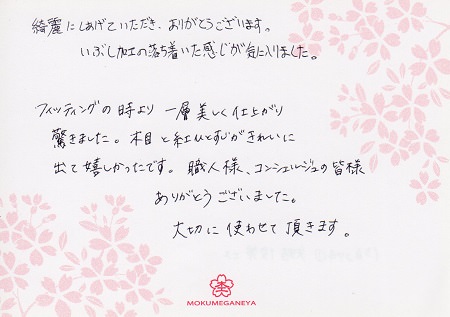 綺麗にしあげていただき、ありがとうございます。
いぶし加工の落ち着いた感じが気に入りました。
フィッティングの時より 一層美しく仕上がり
驚きました。木目と紅ひとすじがきれいに
出て嬉しかったです。職人様、コンシェルジュの皆様
ありがとうございました。
大切に使わせて頂きます。
MOKUMEGANEYA